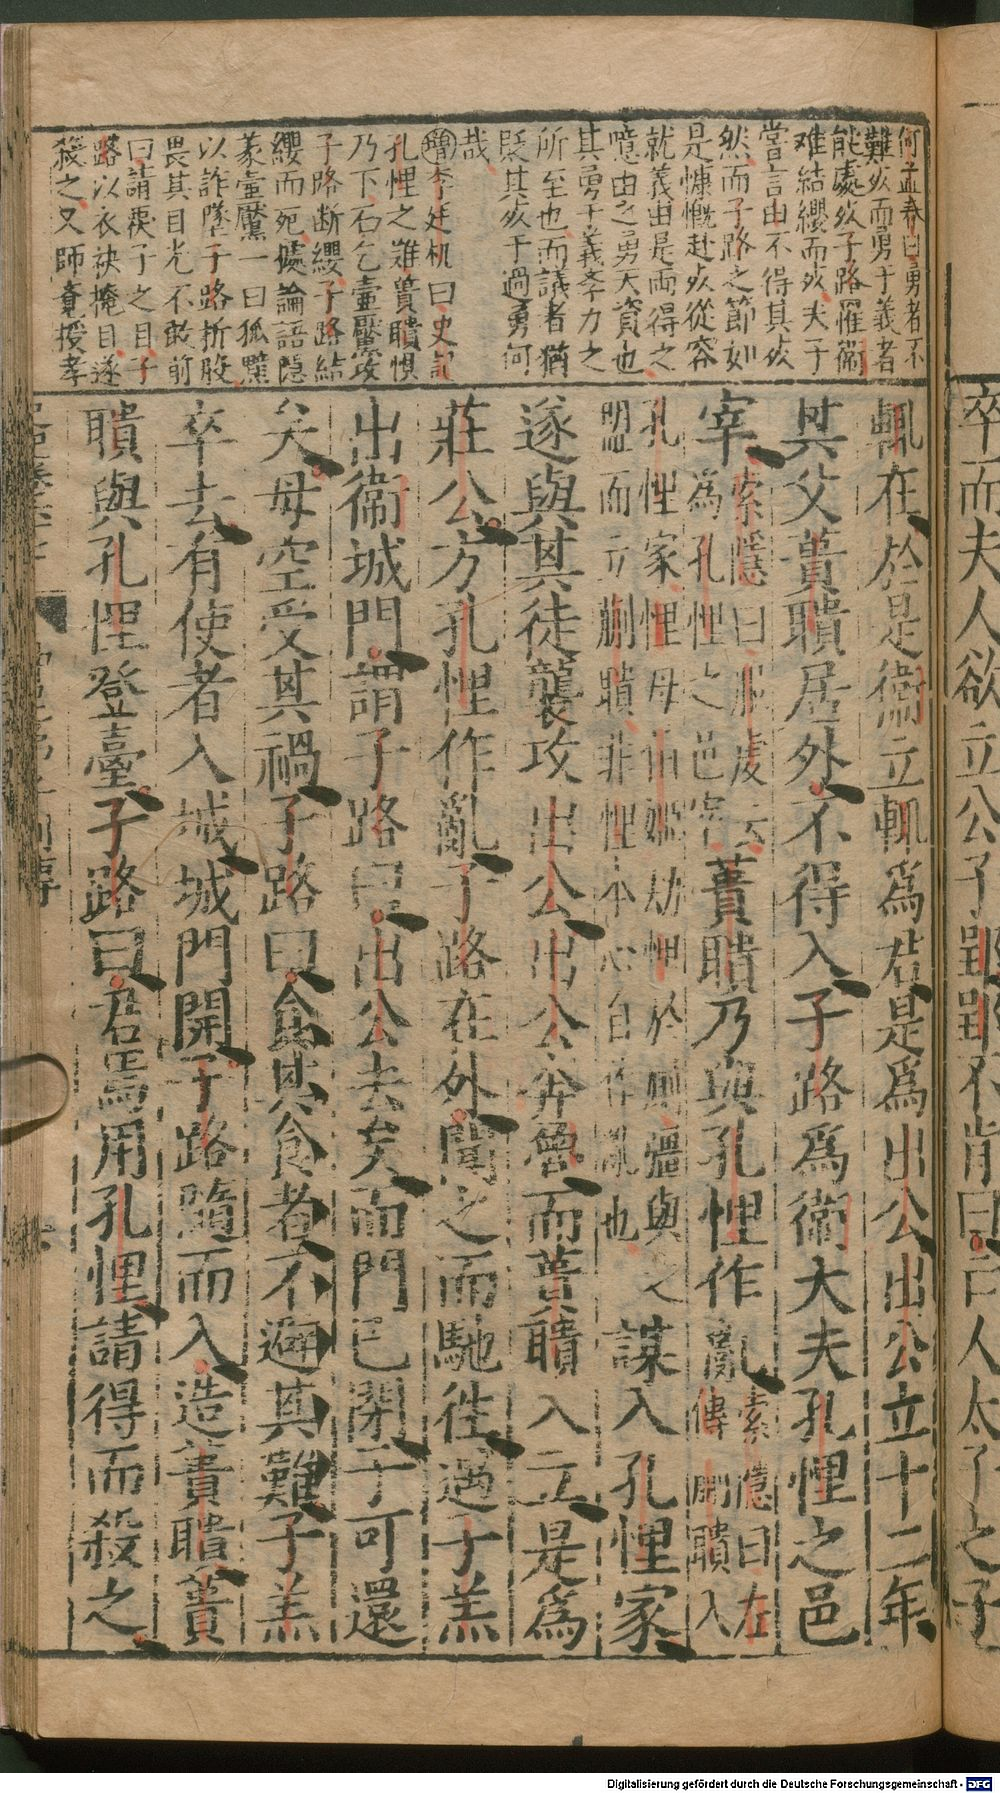 何孟春曰勇者不
難死而勇于義者
能處死子路罹衛
难結纓而死夫子
嘗言由不得其死
然而子路之節如
是慷慨赴死從容
就義由是両得之
噫由之勇天資也
其勇于義季力之
所至也而議者猶
貶其死于過勇何
哉
李廷机曰史記
孔悝之难蕢聵惧
乃下石乞壷黶攻
子路断纓子路結
纓而死
論語隠
豕壷黶一曰狐黶
以詐墜子路折股
畏其目光不敢前
曰請喪子之目子
路以衣袂掩目遂
殺之又師意授孝
輒在於是衛立輒爲君是爲出公出公立十二年
其父蕢聵居外不得入子路爲衛大夫孔悝之邑
宰索隱曰服虔云爲孔悝之邑宰蕢聵乃與孔悝作亂索隱曰左傳蒯聵入
孔悝家悝母伯姬劫悝於厠彊與之盟而立蒯聵非悝本心自作亂也謀入孔悝家
遂與其徒襲攻出公出公奔魯而蕢聵入立是爲
莊公方孔悝作亂子路在外聞之而馳徃遇子羔
出衛城門謂子路曰出公去矣而門已閉子可還
矣毋空受其禍子路曰食其食者不避其難子羔
卒去有使者入城城門開子路隨而入造蕢聵蕢
聵與孔悝登臺子路曰君焉用孔悝請得而殺之
卒而夫人欲立公子郢郢不肯曰亡人太子之子
Digitalisierung gefördert durch die Deutsche Forschungsgemeinschaft - DFG